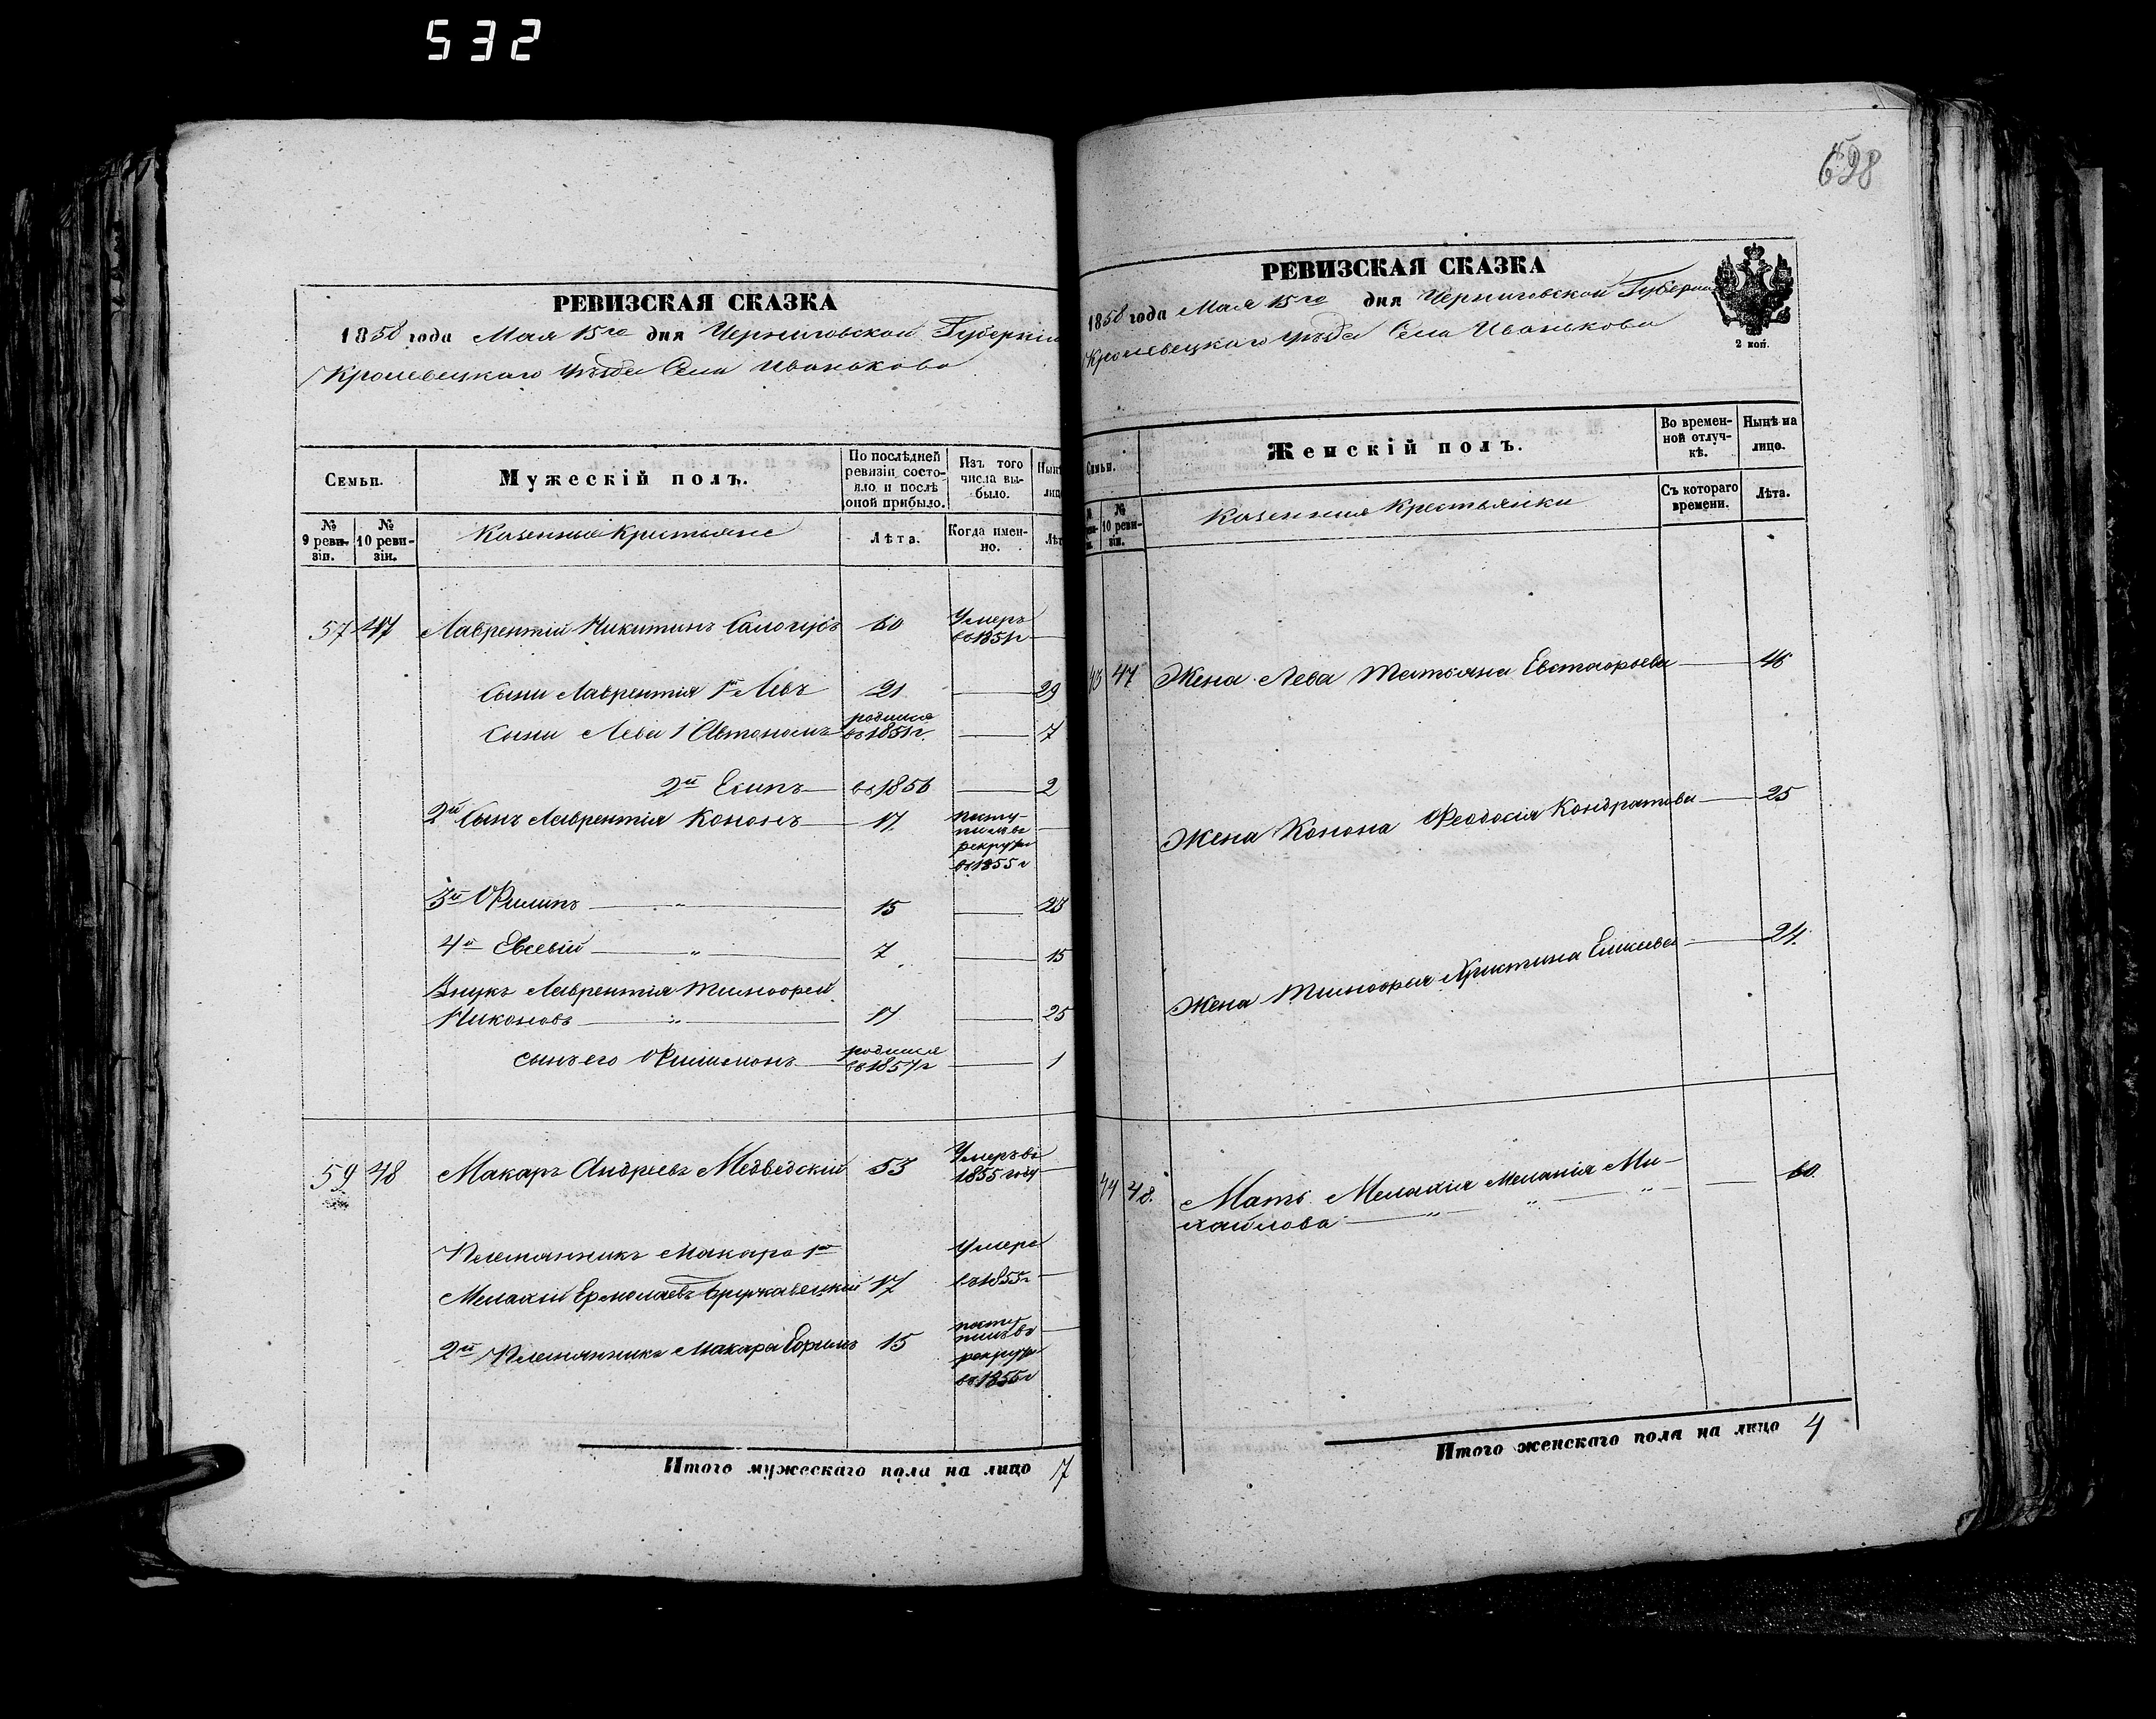 532
РЕВИЗСКАЯ СКАЗКА
1858 года Мая 15го дня Черниговской Губерніи
Кролевецкаго уѣзда Села Иванькова
Семьи.
Мужескій полъ.
По послѣдней ревизіи состояло и послѣ оной прибыло.
Изъ того числа выбыло.
№ 9 ревизіи.
№ 10 ревизіи.
Казенные Крестьяне
Лѣта.
Когда именно.
57 47 Лаврентій Никитинъ 60 Умеръ въ 1851г
Сынъ Лаврентія 1й Левъ 21 29
Сыны Лева 1 Автономъ родился въ 1851г. 7
2й Есипъ въ 1856 2
2й Сынъ Лаврентія Кононъ 17 поступилъ въ рекруты въ 1855г
3й Филипъ " 15 23
4й Евсевій " 7 15
Внукъ Лаврентія Тимофей
Никоновъ " 17 25
сынъ его Филимонъ родился въ 1857г 1
59 48 Макаръ Андреевъ Медведскій 53 Умеръ въ 1855 году
Племянникъ Макара 1й Умеръ
Мелахій Ермолаевъ 17 въ 1855г
2й Племянникъ Макара Ефимъ 15 поступилъ въ рекруты въ 1855г
Итого мужескаго пола на лицо 7
698
РЕВИЗСКАЯ СКАЗКА
1858 года Мая 15го дня Черниговской Губерніи
Кролевецкаго уѣзда Села Иванькова
2 коп.
Семьи.
Женскій полъ.
Во временной отлучкѣ.
Нынѣ на лицо.
№ 10 ревизіи.
Казенныя Крестьянки
Съ котораго времени.
Лѣта.
47 Жена Лева Татьяна Евстафьева 46
Жена Конона Феодосія Кондратова 25
Жена Тимофея Христина Елисеева 24
48. Мать Мелахія Меланія Ми- 60.
хайлова " " "
Итого женскаго пола на лицо 4